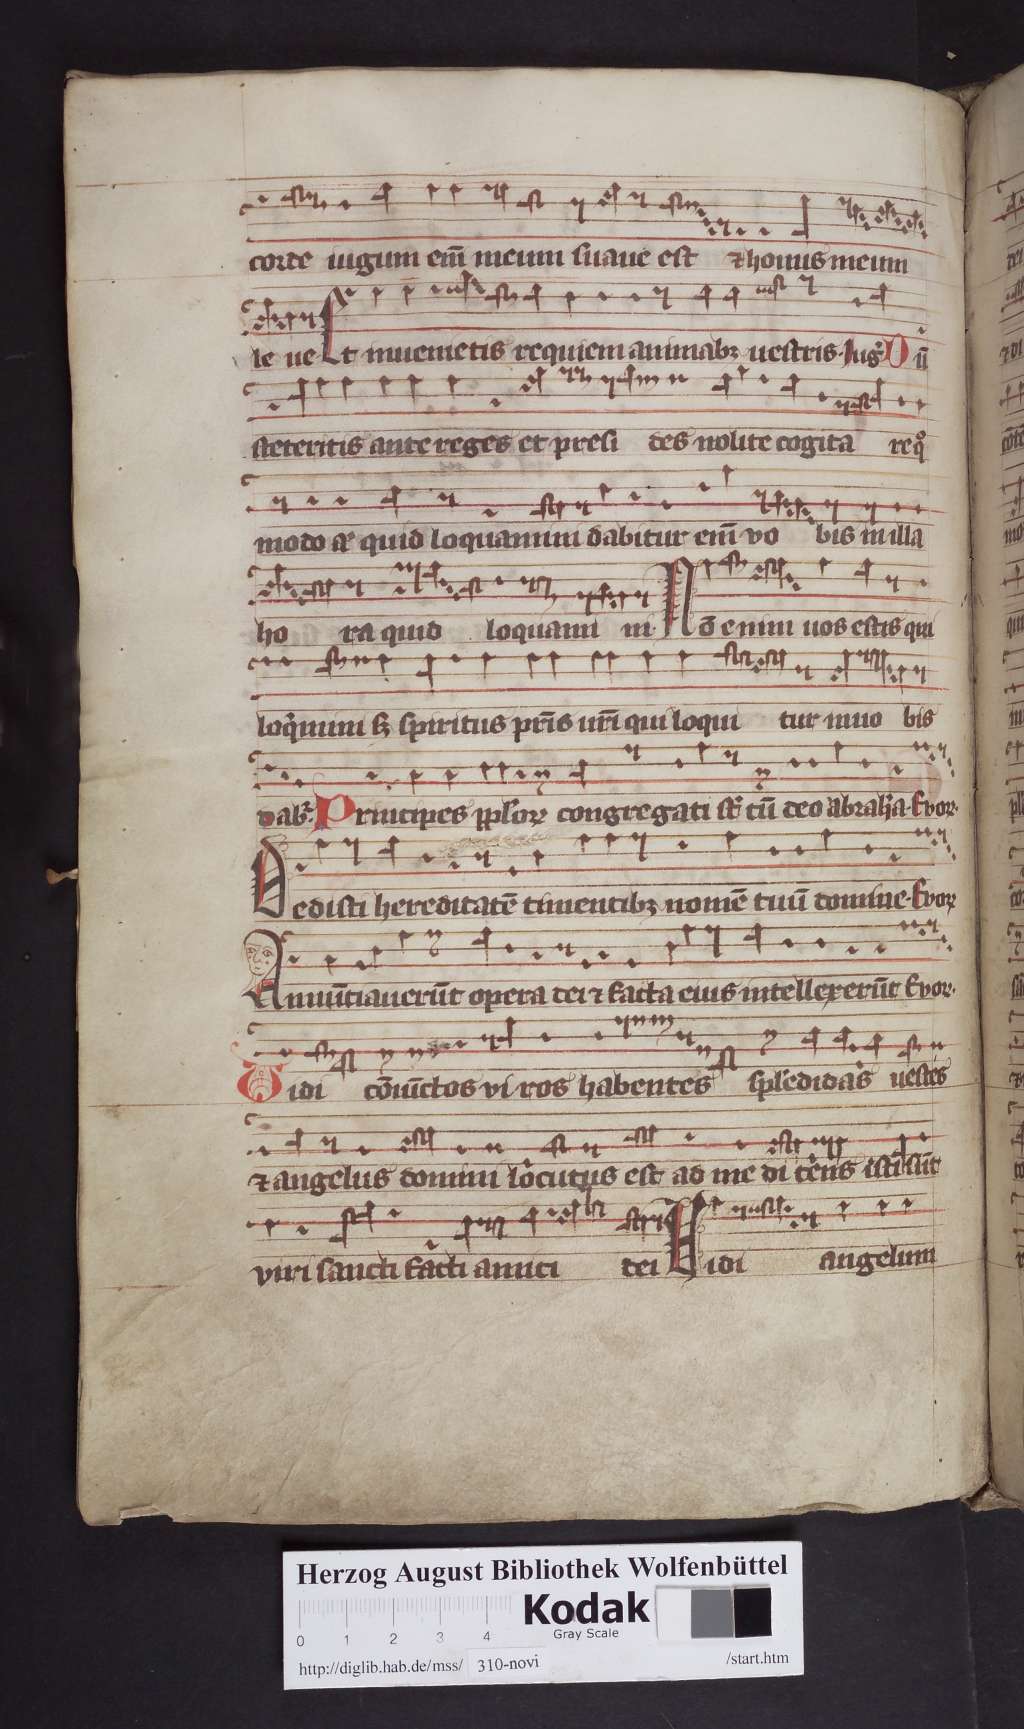 corde iugum em̄ meum suaue est ⁊ honus meum
le ue Et inuenietis requiem animabꝫ uestris. Iug᷒ Dū
steteritis ante reges et presi des nolite cogita re qͦ
modo aꝉ quid loquamini dabitur em̄ vo bis in illa
ho ra quid loquami ni. Nō enim uos estis qui
loq̇mini sꝫ spiritus pr̄is ur̄i qui loqui tur in uo bis
dabꝫ. Principes ppl'oꝝ congregati st̄ cū deo abrahā. Evor.
Dedisti hereditatē timentibꝫ nomē tuū domine. Evoꝝ
Annūtiauerūt opera dei ⁊ facta eius intellexerūt Evor.
Vidi cōiūctos vi ros habentes splēdidas uestes
⁊ angelus domini locutus est ad me di cēns isti sūt
viri sancti facti amici dei Vidi angelum
Herzog August Bibliothek Wolfenbüttel
0 1 2 3 4
Kodak
Gray Scale
http://diglib.hab.de/mss/ 310-novi /start.htm